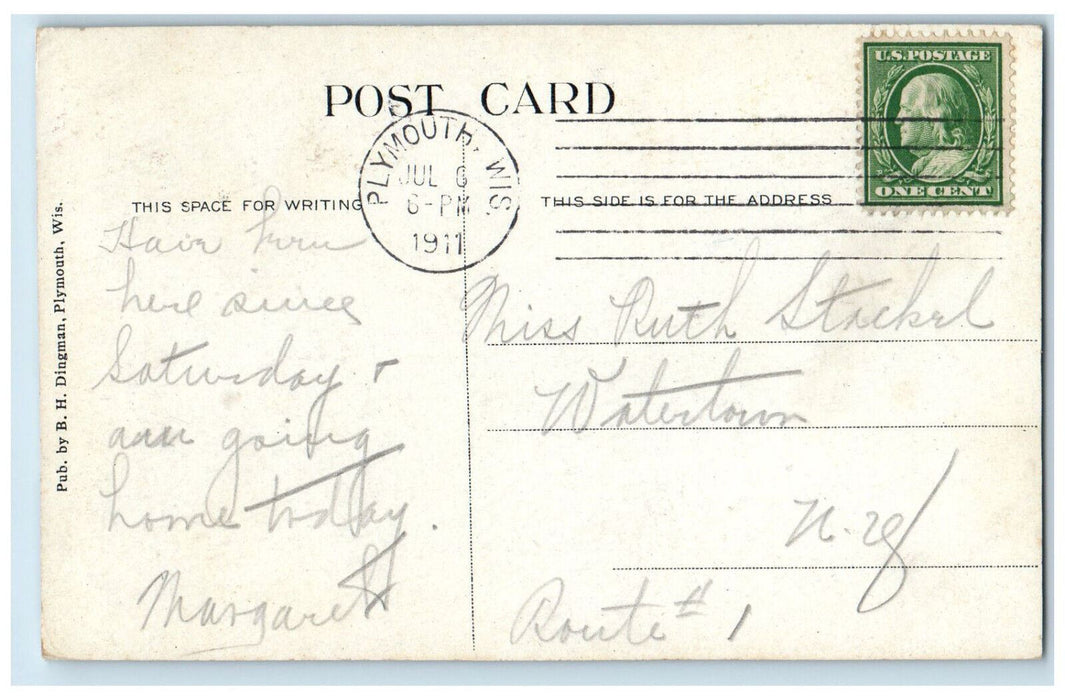 POST CARD
U.S. POSTAGE
ONE CENT
PLYMOUTH, WIS.
JUL 6
6-PM
1911
THIS SPACE FOR WRITING
THIS SIDE IS FOR THE ADDRESS
Pub. by B. H. Dingman, Plymouth, Wis.
Have been
here since
Saturday &
am going
home today.
Margaret
Miss Ruth Stockel
Watertown
Route # 1